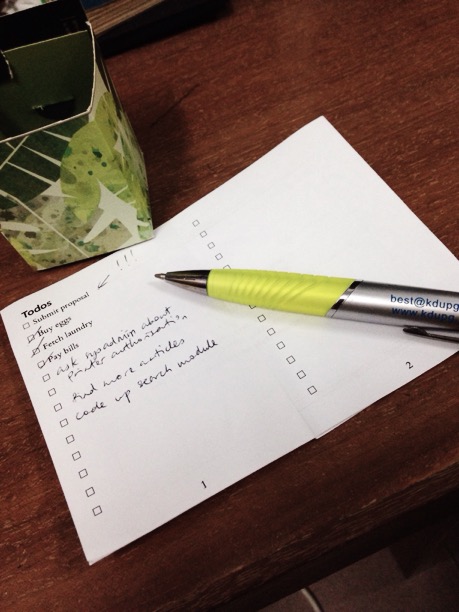 Todos
Submit proposal
!!!
Buy eggs
Fetch laundry
Pay bills
ask sysadmin about
printer authorization
find more articles
code up search module
1
2
best@kdupg
www.kdupg